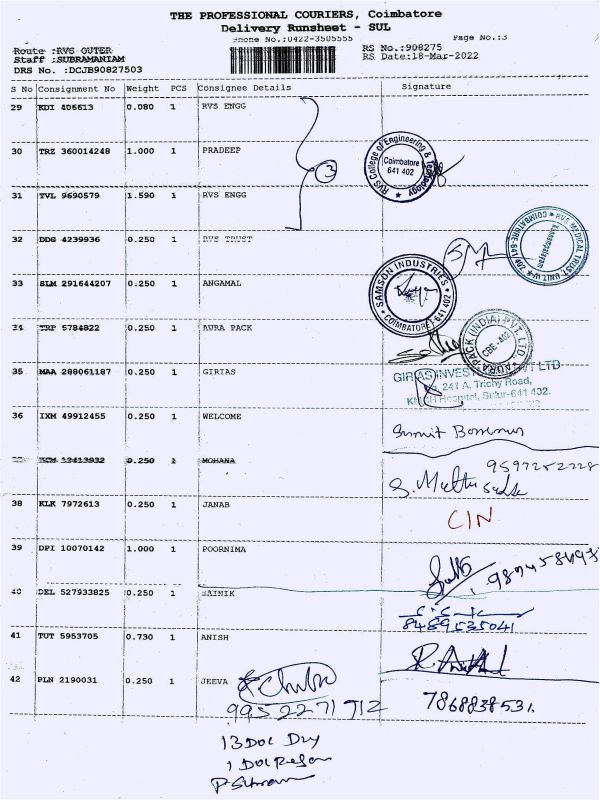 THE PROFESSIONAL COURIERS, Coimbatore
Delivery Runsheet - SUL
Phone No.:0422-3505555 Page No.:3
Route :RVS OUTER RS No.:908275
Staff :SUBRAMANIAM RS Date:18-Mar-2022
DRS No. :DCJB90827503
S No Consignment No Weight PCS Consignee Details Signature
29 KDI 406613 0.080 1 RVS ENGG
30 TRZ 360014248 1.000 1 PRADEEP
3
RVS College of Engineering & Technology
Coimbatore
641 402
31 TVL 9690579 1.590 1 RVS ENGG
32 DDG 4239936 0.250 1 RVS TRUST
RVS MEDICAL TRUST, UNIT
COIMBATORE-641
33 SLM 291644207 0.250 1 ANGAMAL
SAMSON INDUSTRIES
COIMBATORE 641 402
34 TRP 5784822 0.250 1 AURA PACK
AURA PACK (INDIA) PVT. LTD.
CBE-402
35 MAA 288061187 0.250 1 GIRIAS
GIRIAS INVES PVT LTD
No. 241 A, Trichy Road,
KMCH Hospital, Sulur-641 402.
36 IXM 49912455 0.250 1 WELCOME
Sumit
0.250 1 MOHANA
9597252228
S. Muthu
38 KLK 7972613 0.250 1 JANAB
CIN
39 DPI 10070142 1.000 1 POORNIMA
40 DEL 527933825 0.250 1 SAINIK
8489535041
41 TUT 5953705 0.730 1 ANISH
42 PLN 2190031 0.250 1 JEEVA
7868838531.
9952271712
13 DOC Dry
1 DOC